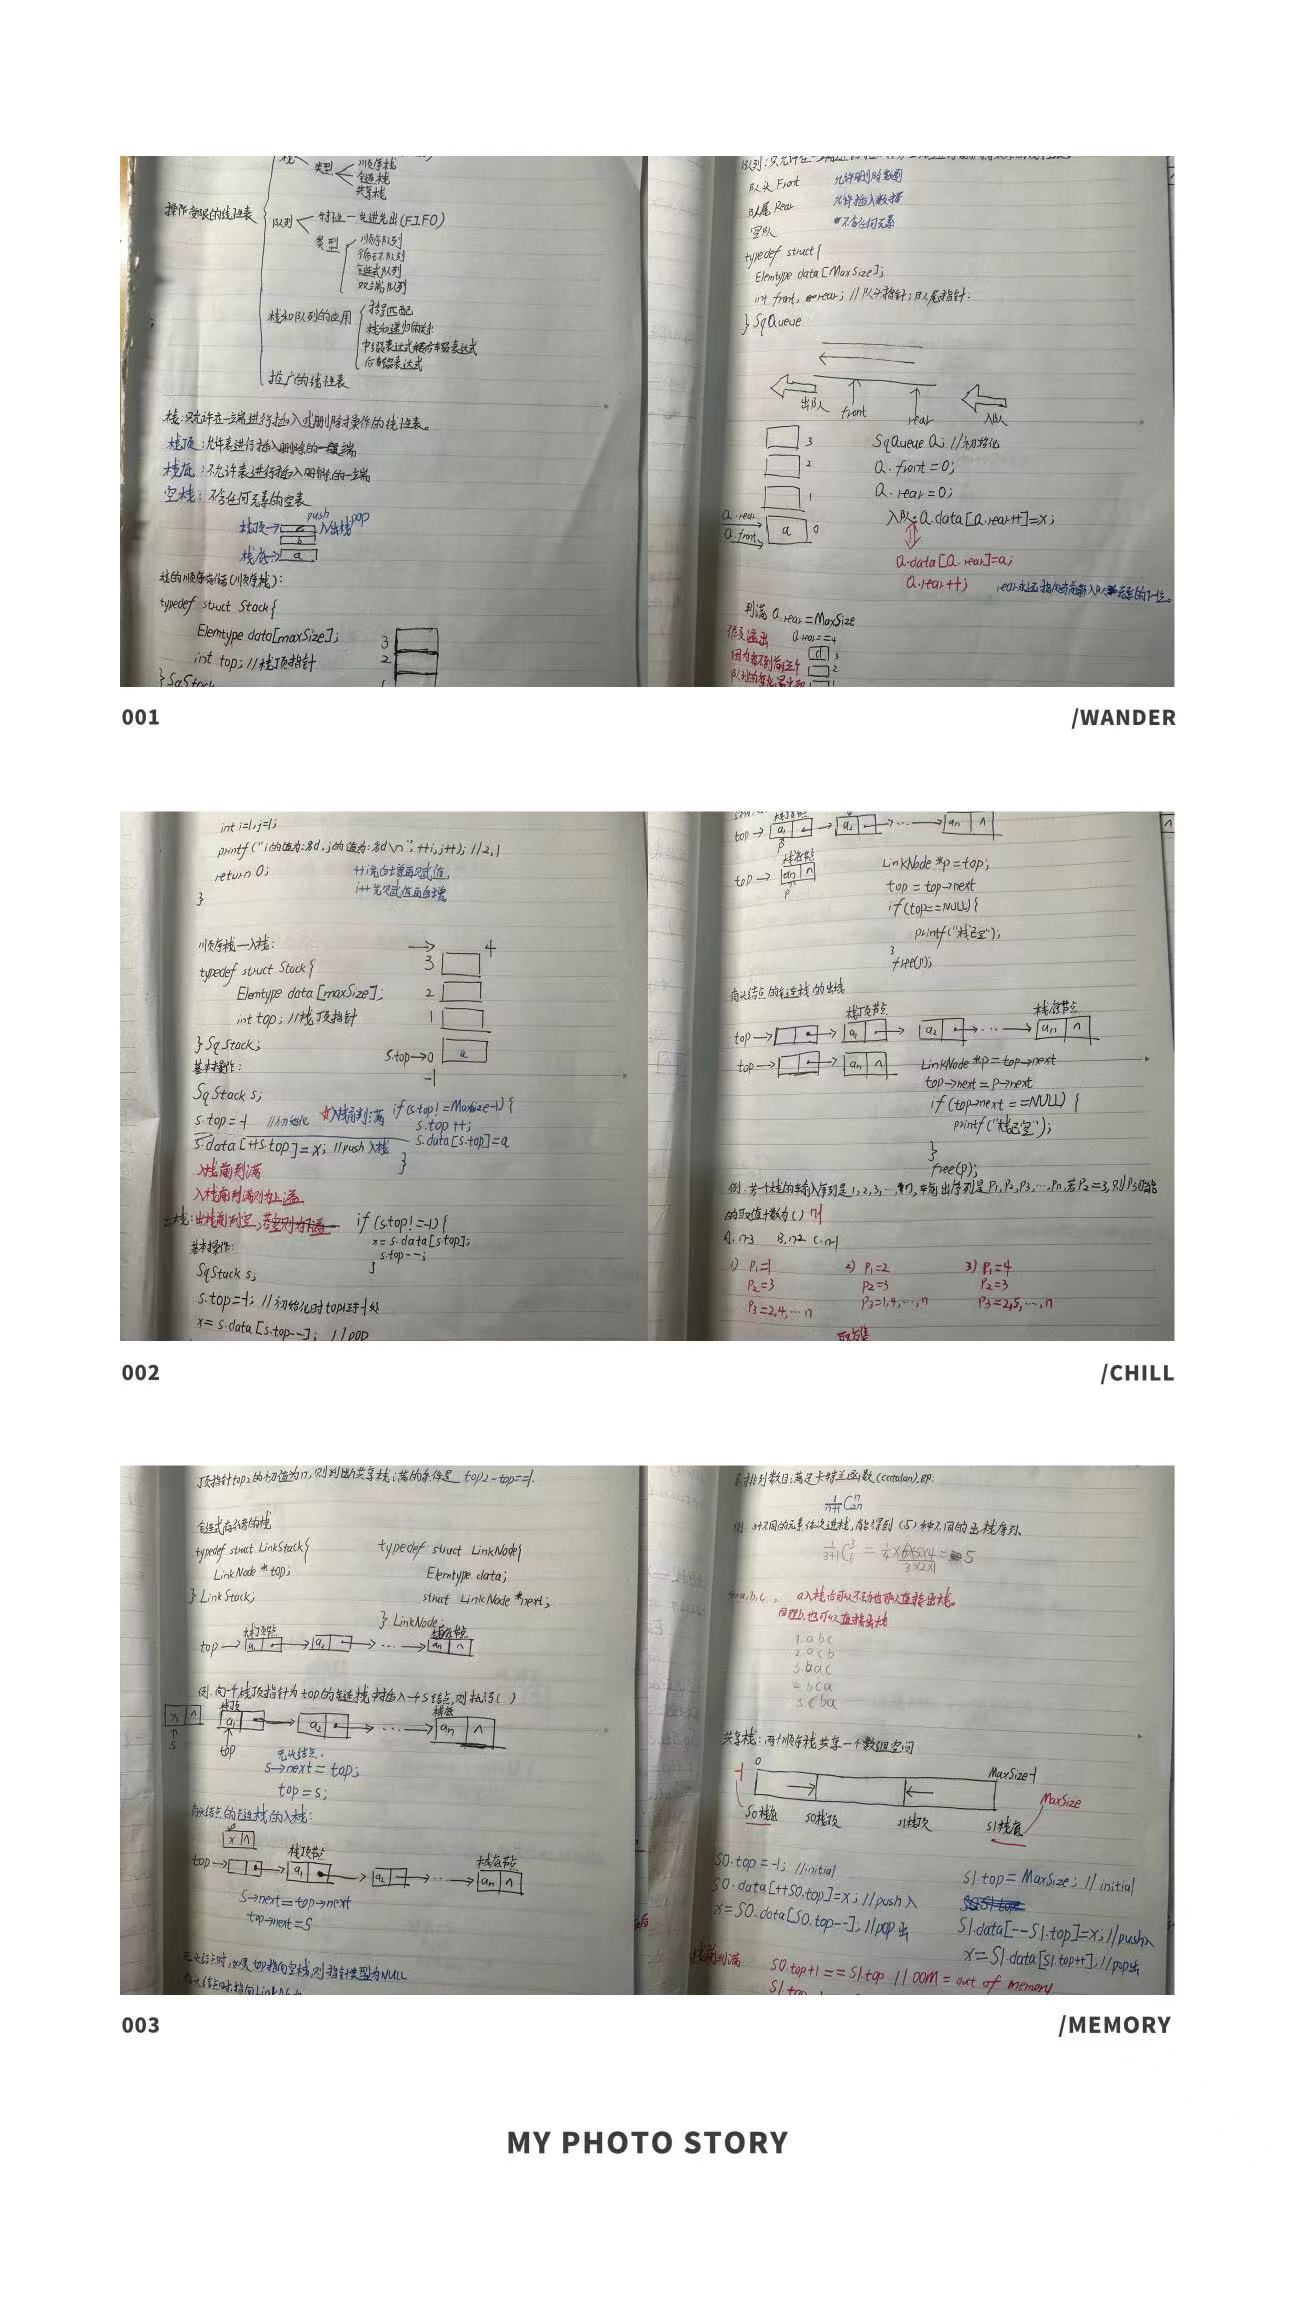 栈
类型 顺序栈
链栈
共享栈
操作受限的线性表
队列 特性—先进先出(FIFO)
类型 顺序队列
循环队列
链式队列
双端队列
栈和队列的应用 括号匹配
栈和递归的关系
后缀表达式
推广的线性表
栈:只允许在一端进行插入或删除操作的线性表。
栈顶:允许表进行插入删除的一端
栈底:不允许表进行插入删除的一端
空栈:不含任何元素的空表
push
栈顶→ 入出栈 pop
b
栈底→ a
栈的顺序存储(顺序栈):
typedef struct Stack{
Elemtype data[maxSize];
3
int top; //栈顶指针
2
} SqStack
队头 Front 允许删除数据
队尾 Rear 允许插入数据
空队 *不含任何元素
typedef struct{
Elemtype data[MaxSize];
int front, rear; //队头指针;队尾指针:
} SqQueue
出队 front rear 入队
3 SqQueue Q; //初始化
2 Q.front=0;
1 Q.rear=0;
Q.rear
Q.front a 0
入队:Q.data[Q.rear++]=x;
Q.data[Q.rear]=a;
Q.rear++;
rear永远指向当前新入队元素的下一位。
判满 Q.rear=MaxSize
假溢出 Q.rear==4
d 3
2
001 /WANDER
int i=1,j=1;
printf("i的值为:%d,j的值为:%d\n",++i,j++); //2,1
return 0;
++i先自增再赋值
i++先赋值再自增
}
顺序栈—入栈:
4
typedef struct Stack{
3
Elemtype data[maxSize];
2
int top; //栈顶指针
1
} SqStack;
S.top→0 a
-1
基本操作:
SqStack s;
s.top=-1 //初始化
入栈前判满 if(s.top!=MaxSize-1){
s.top++;
s.data[++s.top]=x; //push入栈
s.data[s.top]=a
}
入栈前判满
入栈前判满则为上溢
出栈:出栈前判空,若空则为下溢
if(s.top!=-1){
x=s.data[s.top];
s.top--;
}
基本操作:
SqStack s;
s.top=-1; //初始化时top位于-1处
x=s.data[s.top--]; //pop
栈顶节点
top→ a1 → a2 →⋯→ an ∧
p
栈底节点
top→ an ∧
p
LinkNode *p=top;
top=top→next
if(top==NULL){
printf("栈已空");
}
free(p);
有头结点的链栈的出栈
栈顶节点 栈底节点
top→ → a1 → a2 →⋯→ an ∧
top→ → an ∧
LinkNode *p=top→next
top→next=p→next
if(top→next==NULL){
printf("栈已空");
}
free(p);
例.若一个栈的输入序列是1,2,3,⋯,n,输出序列是P1,P2,P3,⋯,Pn,若P2=3,则P3可能
的取值个数为() n-1
A.n-3 B.n-2 C.n-1
1) P1=1 2) P1=2 3) P1=4
P2=3 P2=3 P2=3
P3=2,4,⋯n P3=1,4,⋯,n P3=2,5,⋯,n
002 /CHILL
顶指针top2的初值为n,则判断共享栈满的条件是 top2-top==1.
链式存储的栈
typedef struct LinkStack{
LinkNode *top;
} LinkStack;
typedef struct LinkNode{
Elemtype data;
struct LinkNode *next;
} LinkNode;
栈顶节点 栈底节点
top→ a1 → a2 →⋯→ an ∧
例.向一个栈顶指针为top的链栈中插入一个S结点,则执行()
栈顶 栈底
x ∧ a1 → a2 →⋯→ an ∧
s top
无头结点.
s→next=top;
top=s;
有头结点的链栈的入栈:
x ∧
栈顶节点 栈底节点
top→ → a1 → a2 →⋯→ an ∧
S→next=top→next
top→next=S
无头结点时,如果top指向空栈,则指针类型为NULL
排列数目满足卡特兰函数(catalan),即:
1/(n+1) C2n^n
例 3个不同的元素依次进栈,能得到(5)种不同的出栈序列.
1/(3+1) C6^3 = 1/4 × (6×5×4)/(3×2×1) = 5
a,b,c, a入栈后可以不动也可以直接出栈。
同理b,也可以直接出栈
1.abc
2.acb
3.bac
4.bca
5.cba
共享栈:两个顺序栈共享一个数组空间
-1 0 MaxSize-1
MaxSize
S0栈底 S0栈顶 S1栈顶 S1栈底
S0.top=-1; //initial
S0.data[++S0.top]=x; //push入
x=S0.data[S0.top--]; //pop出
S1.top=MaxSize; //initial
S1.data[--S1.top]=x; //push入
x=S1.data[S1.top++]; //pop出
栈前判满 S0.top+1==S1.top //OOM=out of memory
003 /MEMORY
MY PHOTO STORY